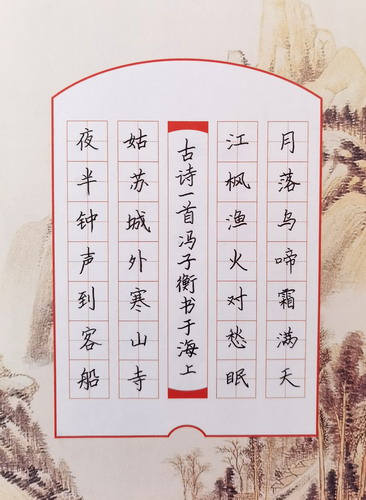 月落乌啼霜满天
江枫渔火对愁眠
古诗一首冯子衡书于海上
姑苏城外寒山寺
夜半钟声到客船